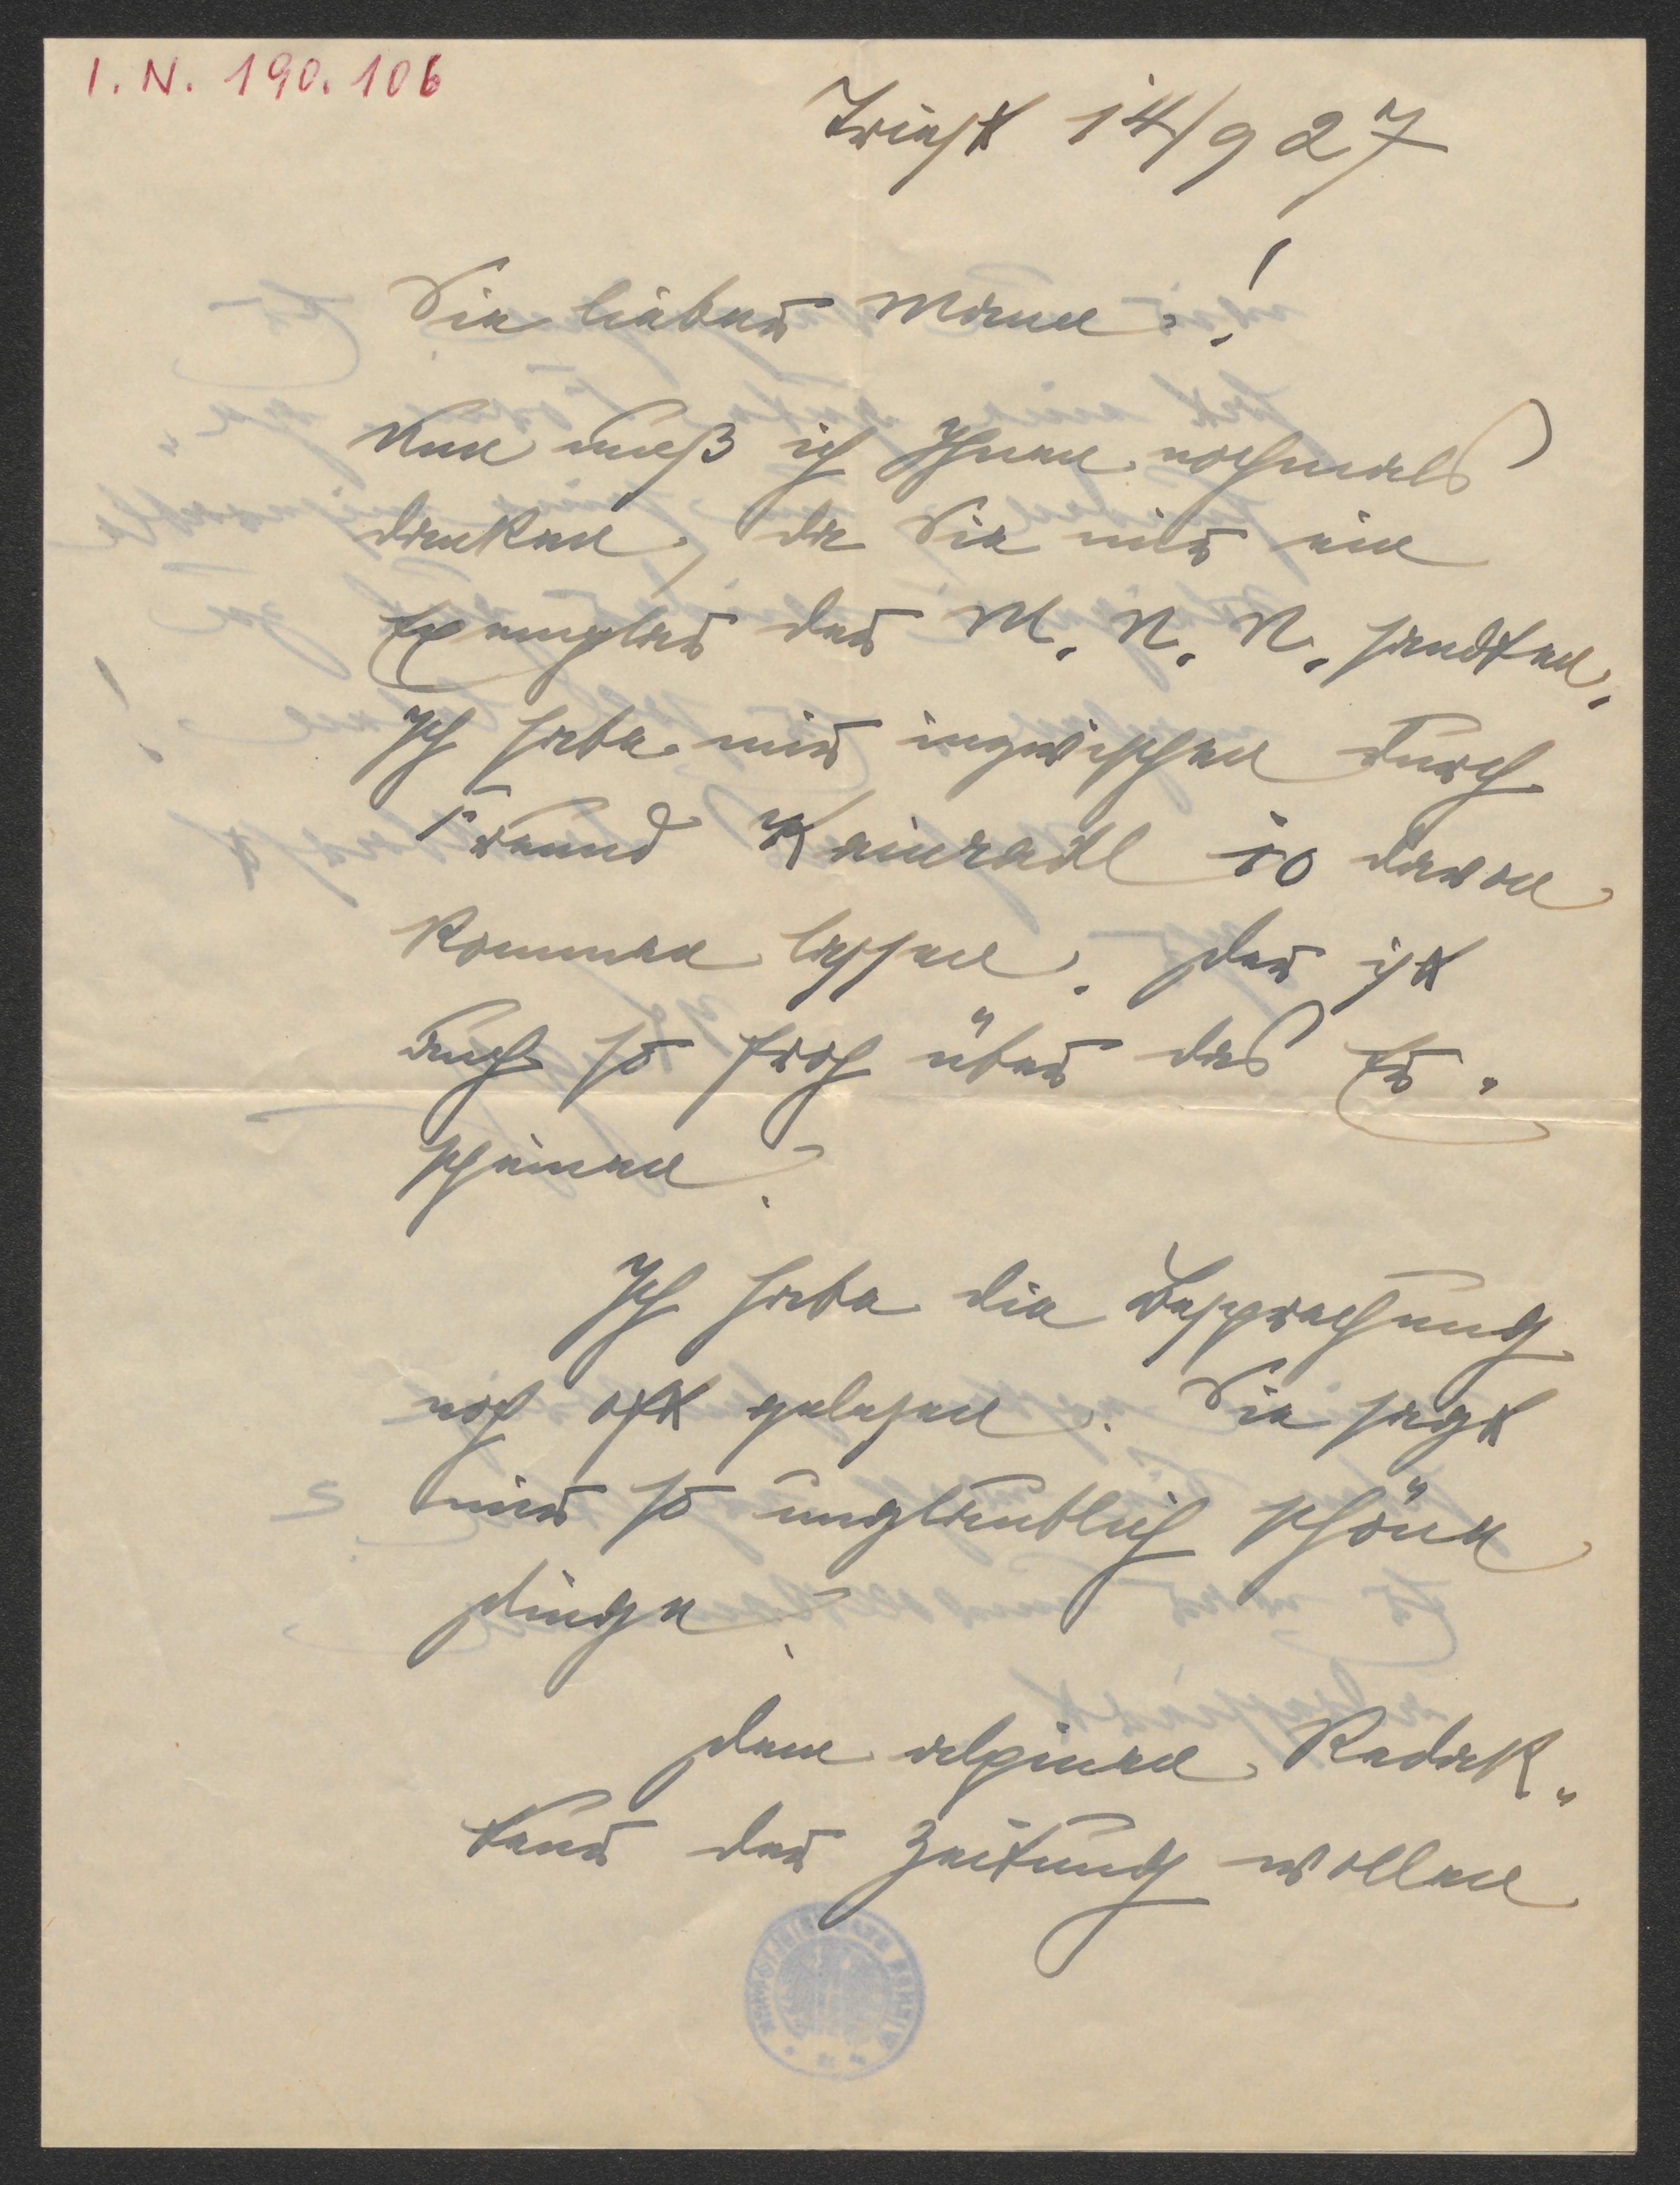 I. N. 190.106
Triest 14/9 27
Sie lieber Mann!
Nun muß ich Ihnen nochmals
danken, da Sie mir ein
Exemplar der M. N. N. sandten.
Ich habe mir inzwischen durch
Freund Kainradl 10 davon
kommen lassen. Der ist
auch so froh über das Er-
scheinen.
Ich habe die Besprechung
noch oft gelesen. Sie sagt
mir so unglaublich schöne
Dinge.
Dem alpinen Redak-
teur der Zeitung wollen